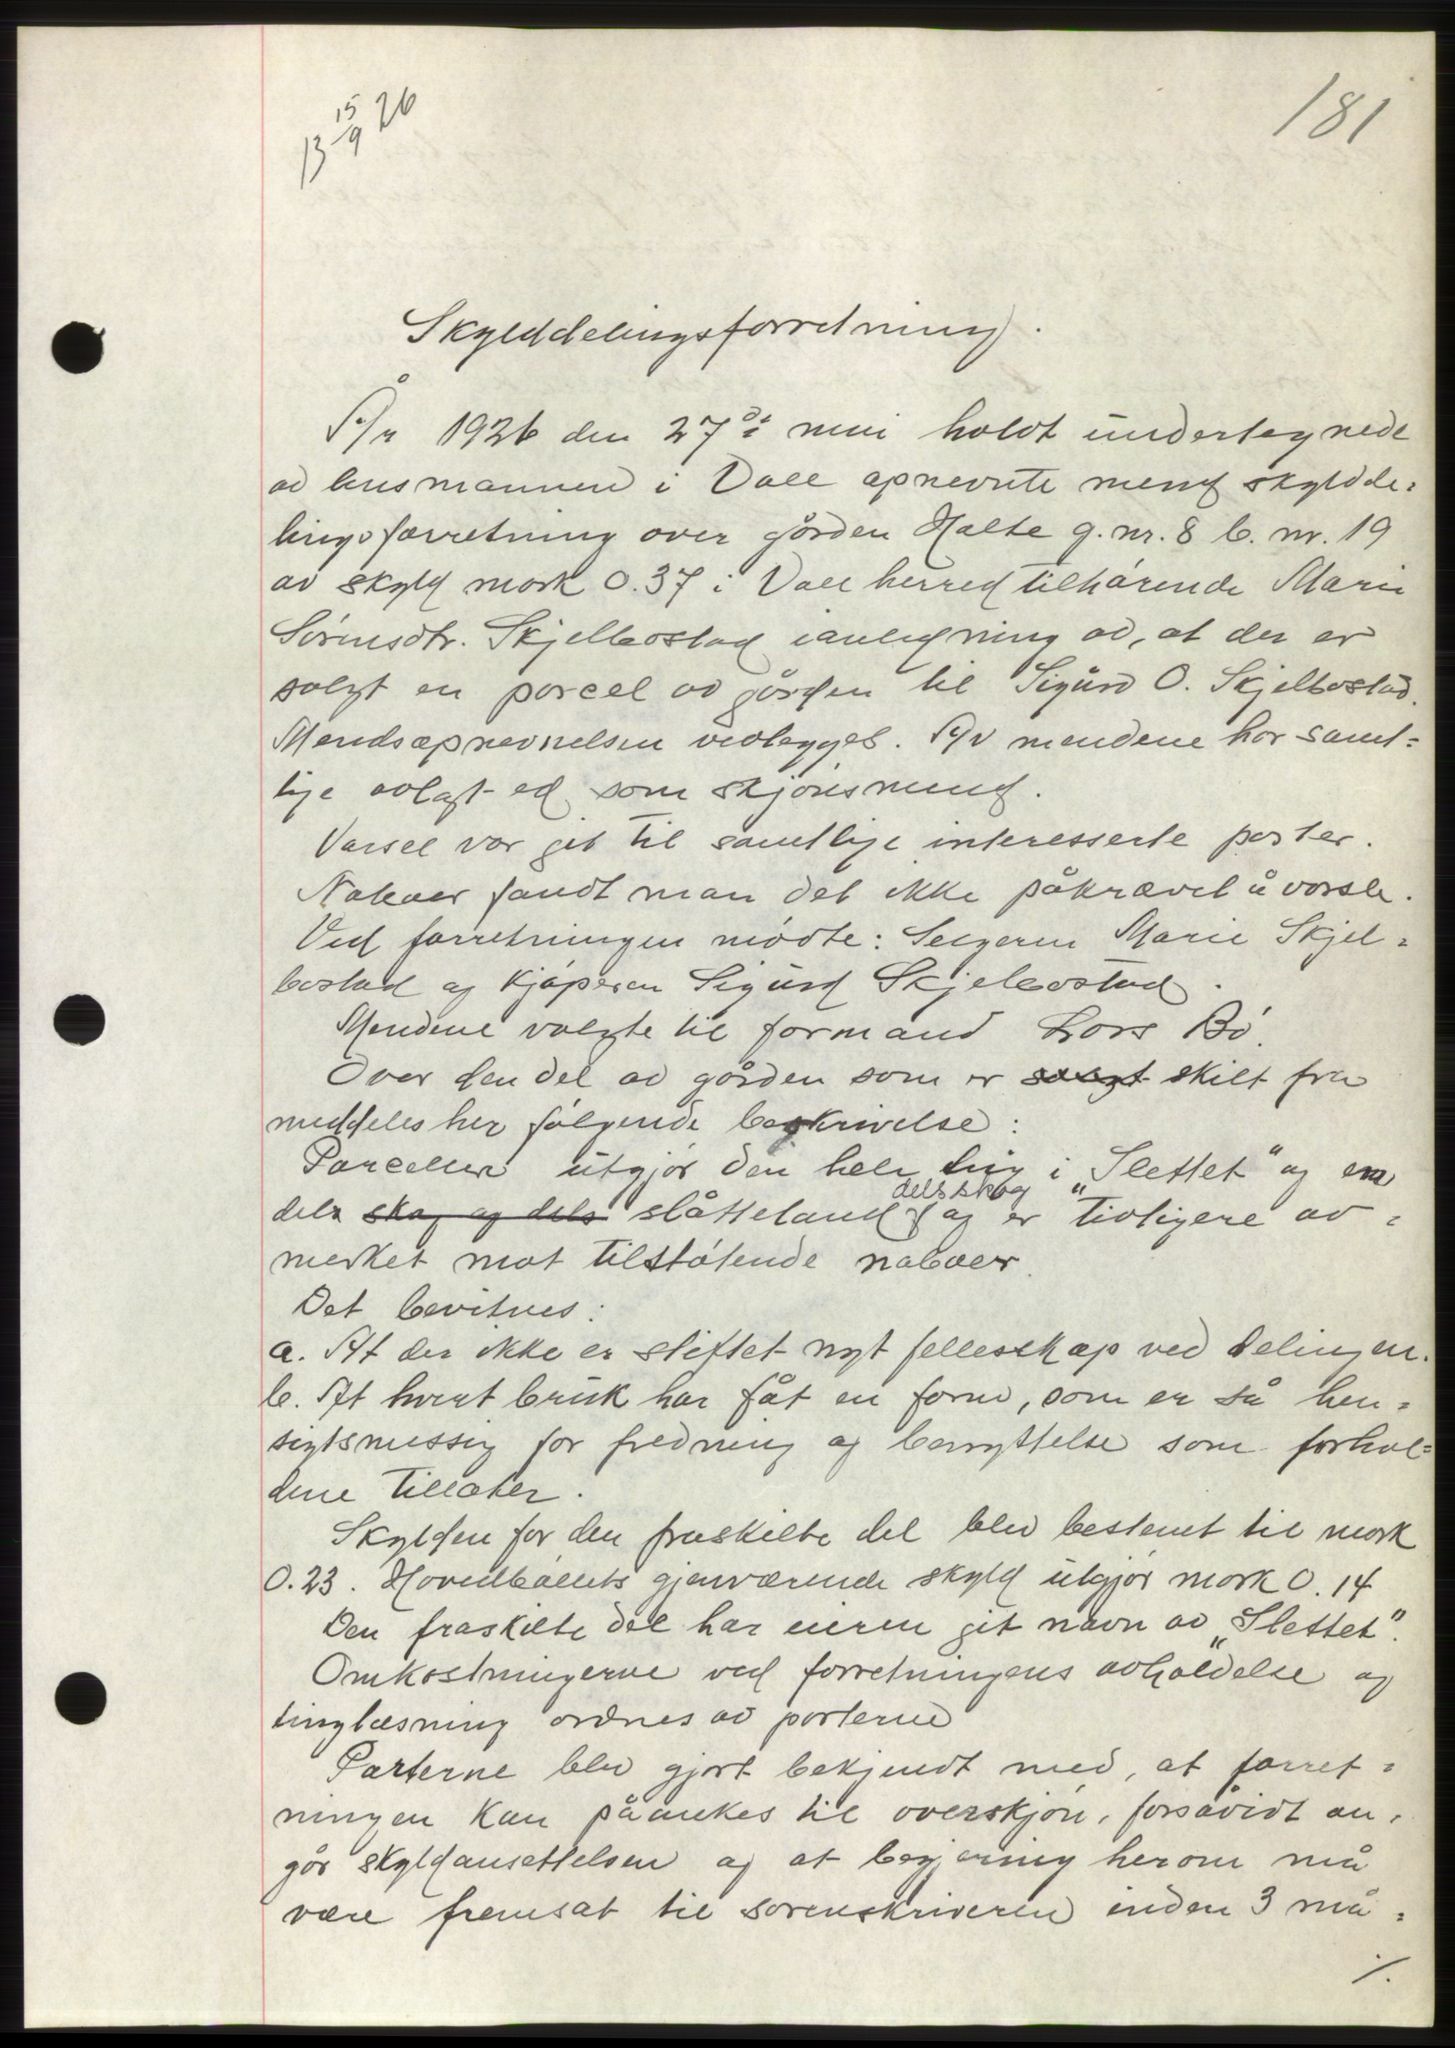 181
13 15/9 26
Skylddelingsforretning.
År 1926 den 27de mai holdt undertegnede
av lensmannen i Vall opnevnte mend skyldde=
lingsforretning over gården Halte g. nr. 8 b. nr. 19
av skyld mark 0.37 i Vall herred tilhørende Marie
Sørensdtr. Skjelbostad i anledning av, at der er
solgt en parcel av gården til Sigurd O. Skjelbostad.
Mendsopnevnelsen vedlegges. Av mendene har samt=
lige avlagt ed som skjønsmend.
Varsel var git til samtlige interesserte parter.
Naboer fandt man det ikke påkrævet å varsle.
Ved forretningen møtte: Selgeren Marie Skjel=
bostad og kjøperen Sigurd Skjelbostad.
Mendene valgte til formand Lars Bø.
Over den del av gården som er solgt skilt fra
meddeles her følgende beskrivelse:
Parcellen utgjør den hele teig i „Slettet" og er
dels skog og dels slåtteland dels skog og er tidligere av=
merket mot tilstøtende naboer.
Det bevitnes:
a. At der ikke er stiftet nyt fellesskap ved delingen.
b. At hvert bruk har fåt en form, som er så hen=
sigtsmessig for fredning og benyttelse som forhol=
dene tillater.
Skylden for den fraskilte del blev bestemt til mark
0.23. Hovedbølets gjenværende skyld utgjør mark 0.14
Den fraskilte del har eieren git navn av „Slettet".
Omkostningerne ved forretningens avholdelse og
tinglæsning ordnes av parterne
Parterne blev gjort bekjendt med, at forret=
ningen kan påankes til overskjøn, forsåvidt an=
går skyldansettelsen og at begjæring herom må
være fremsat til sorenskriveren inden 3 må=
./.